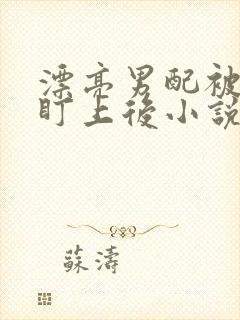 漂亮男配被
盯上後小說
蘇濤